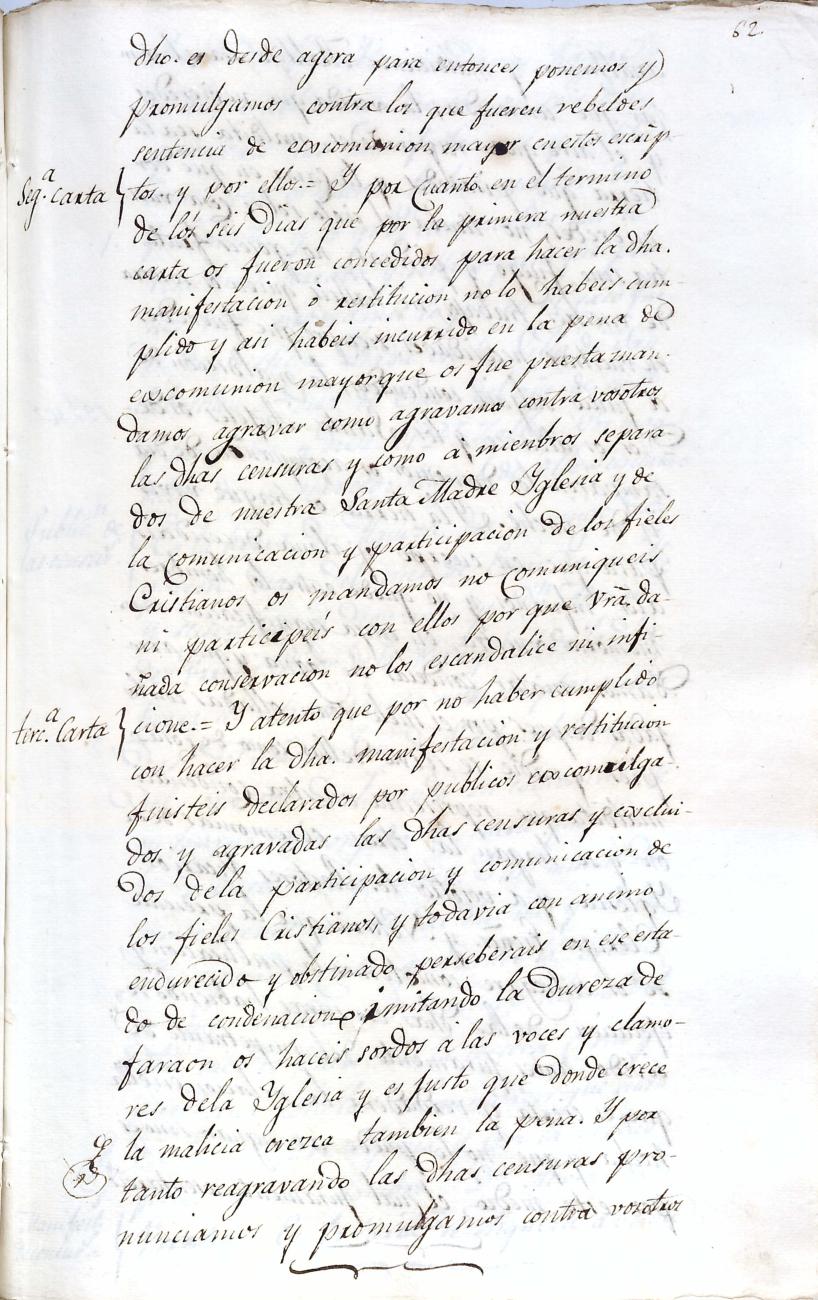 62.
dho. es desde agora para entonces ponemos y
promulgamos contra los que fueren rebeldes
sentencia de excomunion mayor en estos escrip-
Seg.ª carta } tos y por ellos.= Y por Cuanto en el termino
de los seis Dias que por la primera nuestra
carta os fueron concedidos para hacer la dha.
manifestacion ò restitucion no lo habeis cum-
plido y asi habeis incurrido en la pena de
excomunion mayor que os fue puesta man-
damos agravar como agravamos contra vosotros
las dhas censuras y como à miembros separa-
dos de nuestra Santa Madre Yglesia y de
la comunicacion y participacion de los fieles
Cristianos os mandamos no Comuniqueis
ni participeis con ellos por que vrã. da-
ñada conservacion no los escandalice ni infi-
terc.ª Carta } cione.= Y atento que por no haber cumplido
con hacer la dha. manifestacion y restitucion
fuisteis declarados por publicos excomulga-
dos y agravadas las dhas censuras y exclui-
dos dela participacion y comunicacion de
los fieles Cristianos, y todavia con animo
endurecido y obstinado perseberais en ese esta-
do de condenacion imitando la dureza de
faraon os haceis sordos à las voces y clamo-
res dela Yglesia y es justo que donde crece
la malicia crezca tambien la pena. Y por
tanto reagravando las dhas censuras pro-
nunciamos y promulgamos contra vosotros